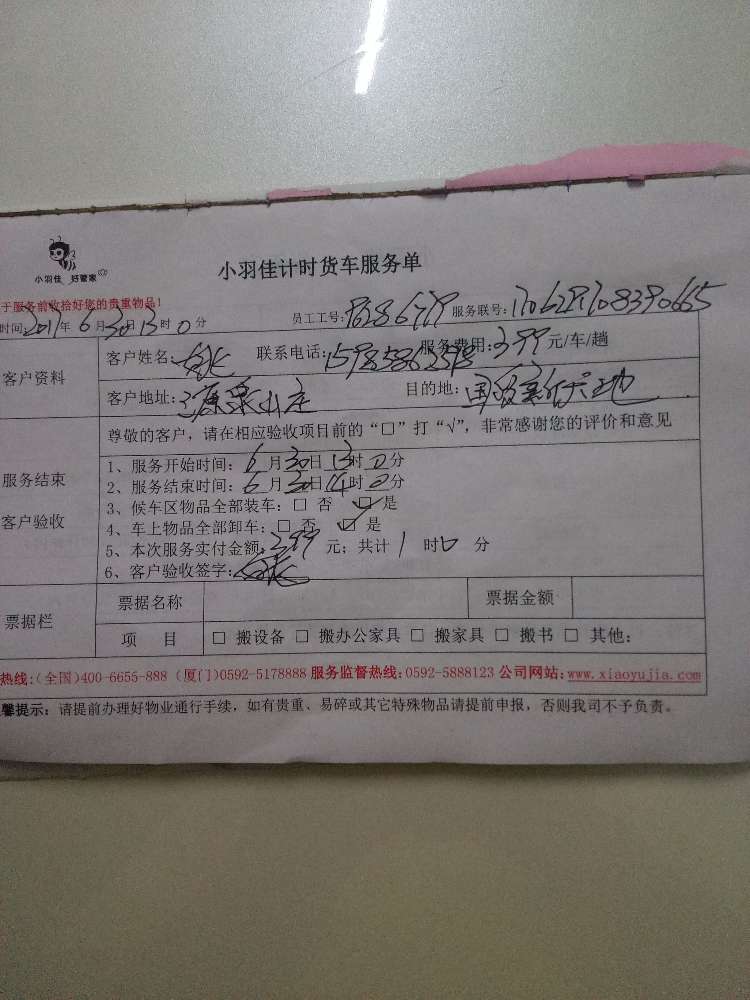 小羽佳 好管家
小羽佳计时货车服务单
于服务前收拾好您的贵重物品！
时间：2017年6月30日13时0分 员工工号： 服务联号：
客户资料
客户姓名： 联系电话： 服务费用：399元/车/趟
客户地址： 目的地：
尊敬的客户，请在相应验收项目前的“□”打“√”，非常感谢您的评价和意见
服务结束
客户验收
1、服务开始时间：6月30日13时0分
2、服务结束时间：6月30日14时0分
3、候车区物品全部装车：□ 否 ☑ 是
4、车上物品全部卸车：□ 否 ☑ 是
5、本次服务实付金额：399元；共计1时0分
6、客户验收签字：
票据栏
票据名称 票据金额
项 目 □ 搬设备 □ 搬办公家具 □ 搬家具 □ 搬书 □ 其他：
热线：(全国)400-6655-888 (厦门)0592-5178888 服务监督热线：0592-5888123 公司网站：www.xiaoyujia.com
馨提示：请提前办理好物业通行手续，如有贵重、易碎或其它特殊物品请提前申报，否则我司不予负责。